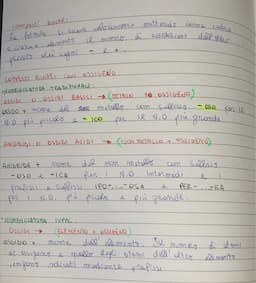 COMPOSTI BINARI:
La formula si scrive
e ciascun elemento il numero di ossidazione dell'altro
preceduto dai segni - e +.
COMPOSTI BINARI CON OSSIGENO
NOMENCLATURA TRADIZIONALE:
OSSIDI O OSSIDI BASICI → (METALLO + OSSIGENO)
OSSIDO + nome del metallo con suffisso -OSO per il
N.O più piccolo e -ICO per il N.O più grande
ANIDRIDI O OSSIDI ACIDI → (NON METALLO + OSSIGENO)
ANIDRIDE + nome del non metallo con suffissi
-OSO e -ICO per i N.O intermedi e i
prefissi e suffissi IPO-...-OSA e PER-...-ICA
per i N.O. più piccolo e più grande.
NOMENCLATURA IUPAC:
OSSIDI → (ELEMENTO + OSSIGENO)
OSSIDO + nome dell'elemento. Il numero di atomi
di ossigeno e quello degli atomi dell'altro elemento
vengono indicati mediante prefissi